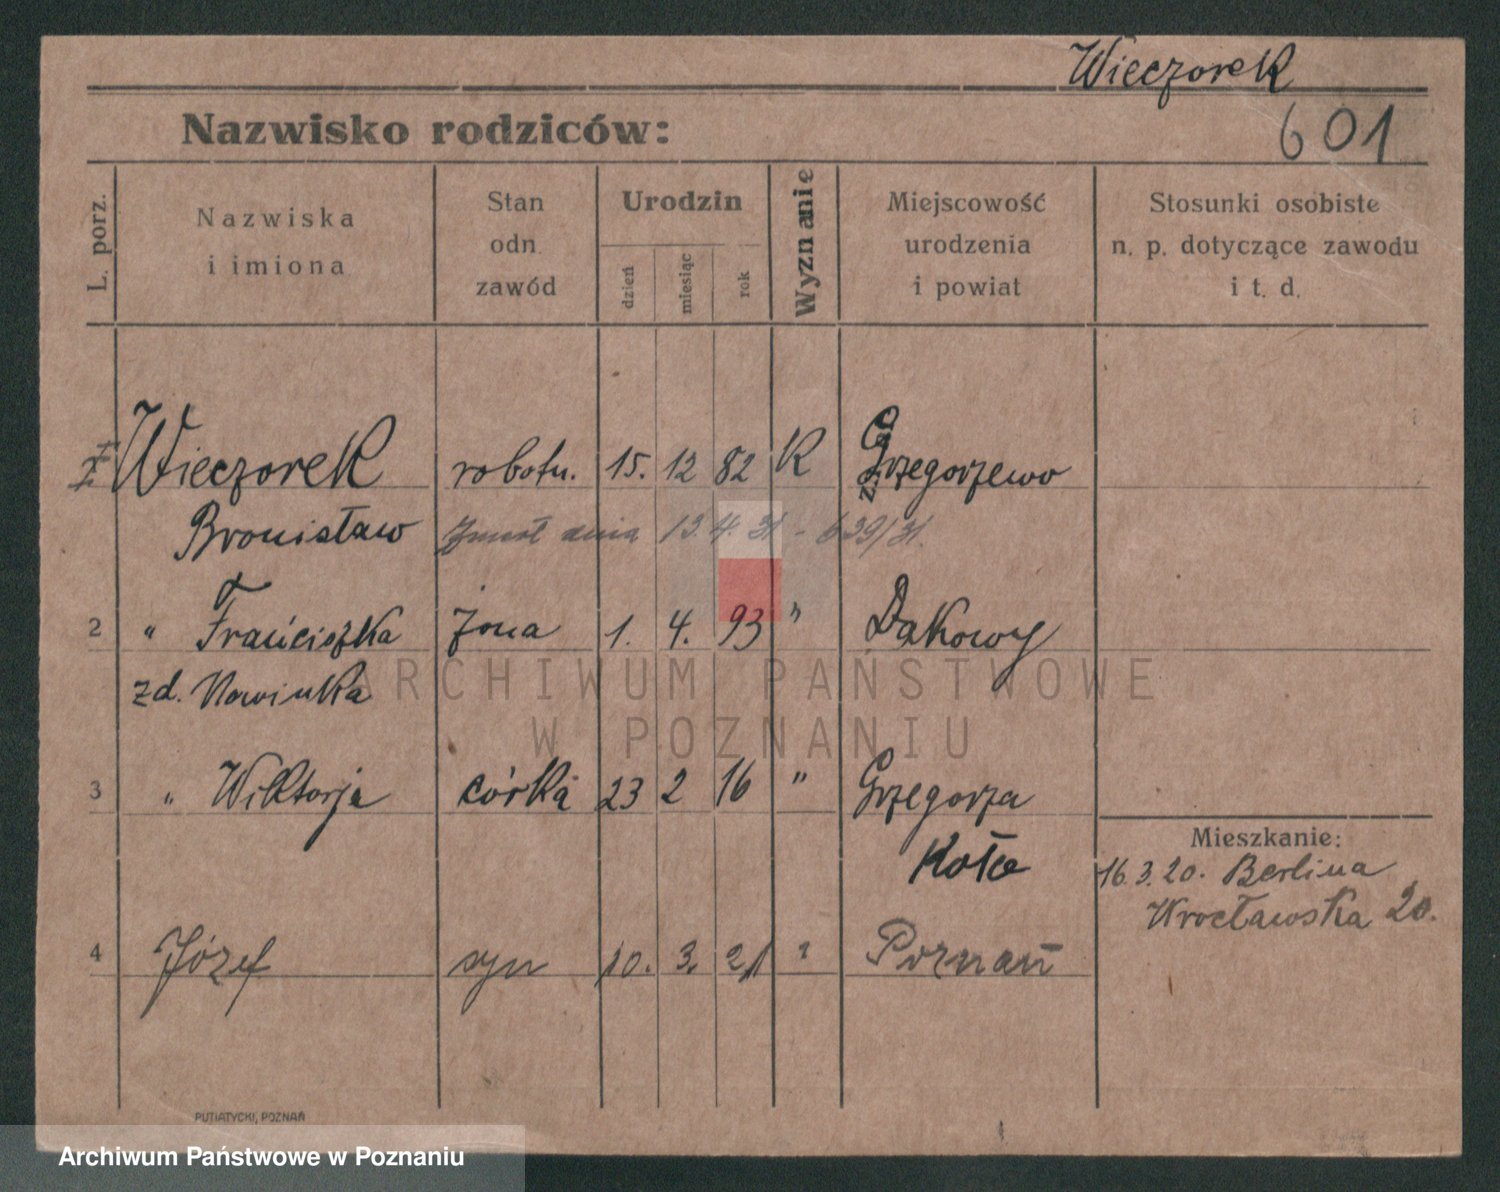 Wieczorek
Nazwisko rodziców:
601
L. porz.
Nazwiska
i imiona
Stan
odn.
zawód
Urodzin
dzień
miesiąc
rok
Wyznanie
Miejscowość
urodzenia
i powiat
Stosunki osobiste
n. p. dotyczące zawodu
i t. d.
Wieczorek robotn. 15. 12 82 K Grzegorzewo
Bronisław Zmarł dnia 13.4.31 - 639/31.
2 " Franciszka żona 1. 4. 93 " Dakowy
zd. Nowinka
3 " Wiktorja córka 23 2 16 " Grzegorza
Koło
Mieszkanie:
16.3.20. Berlina
Wrocławska 20.
4 Józef syn 10. 3. 21 " Poznań
PUTIATYCKI, POZNAŃ
ARCHIWUM PAŃSTWOWE
W POZNANIU
Archiwum Państwowe w Poznaniu